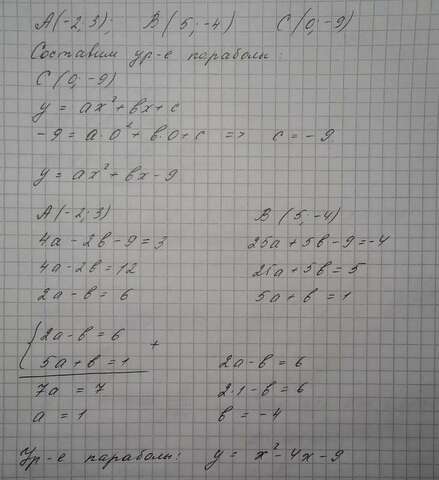 A(-2; 3); B(5; -4) C(0; -9)
Составим ур-е параболы:
C(0; -9)
y = ax² + bx + c
-9 = a·0² + b·0 + c => c = -9
y = ax² + bx - 9
A(-2; 3) B(5; -4)
4a - 2b - 9 = 3 25a + 5b - 9 = -4
4a - 2b = 12 25a + 5b = 5
2a - b = 6 5a + b = 1
{2a - b = 6
5a + b = 1 + 2a - b = 6
7a = 7 2·1 - b = 6
a = 1 b = -4
Ур-е параболы: y = x² - 4x - 9